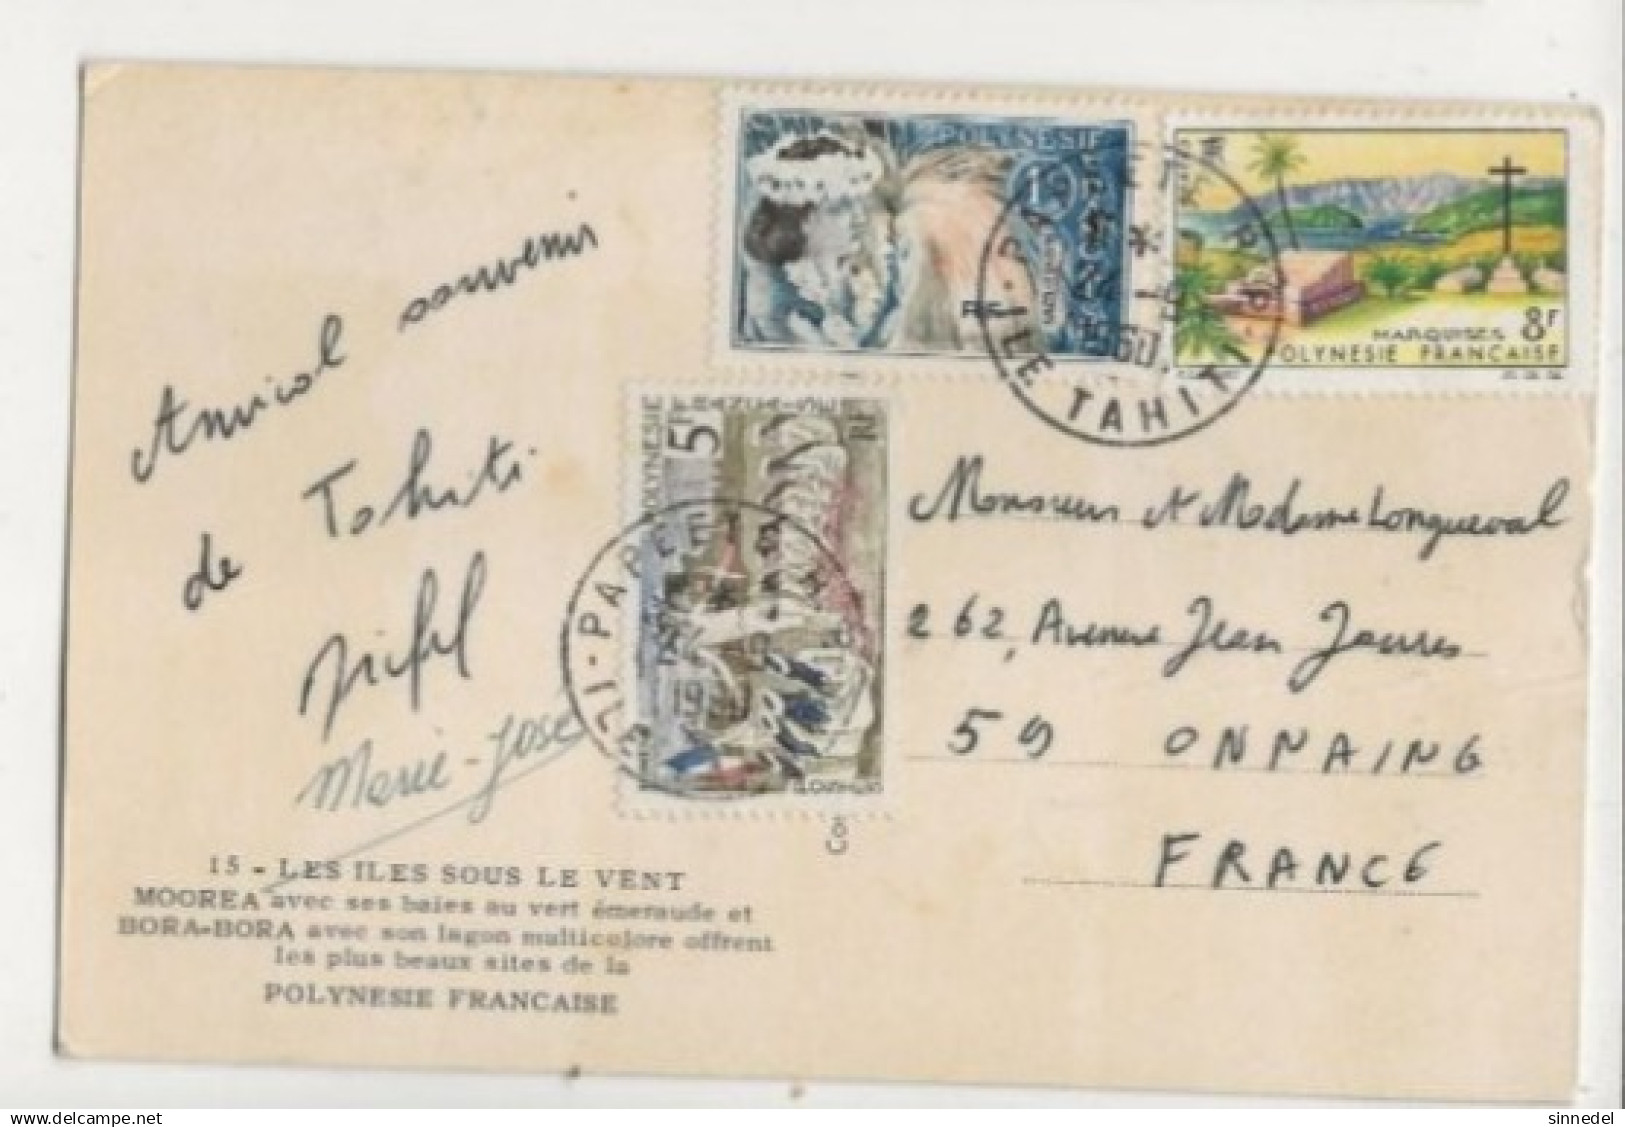 Amical souvenir
de Tahiti
Marie-José
15 - LES ILES SOUS LE VENT
MOOREA avec ses baies au vert émeraude et
BORA-BORA avec son lagon multicolore offrent
les plus beaux sites de la
POLYNESIE FRANCAISE
POLYNESIE
19
RF
MARQUISES 8F
POLYNESIE FRANCAISE
ILE TAHITI
POLYNESIE
5F
RF
Monsieur et Madame Longueval
262, Avenue Jean Jaures
59 ONNAING
FRANCE
delcampe.net
sinnedel